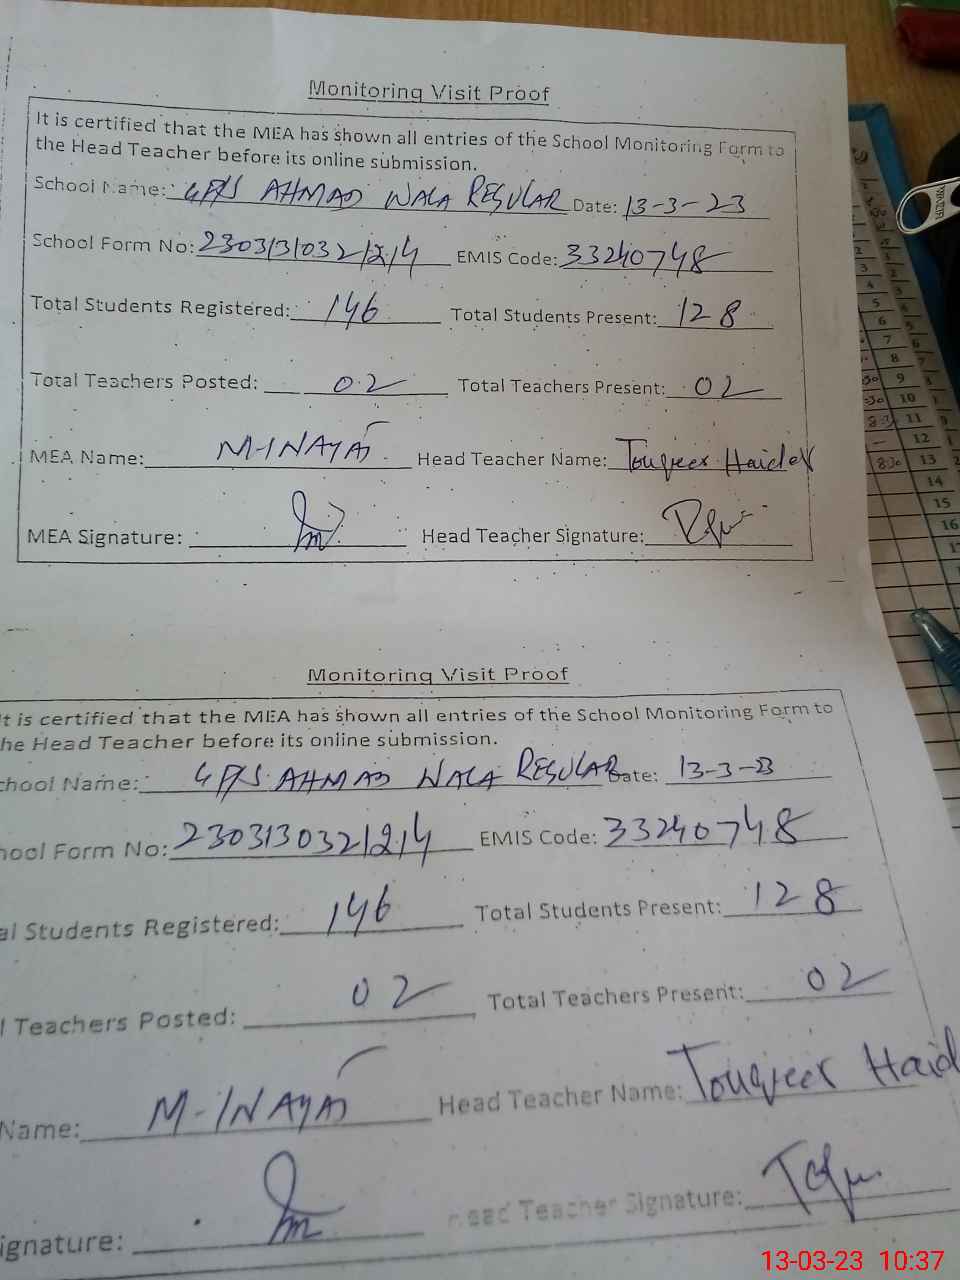 Monitoring Visit Proof
It is certified that the MEA has shown all entries of the School Monitoring Form to
the Head Teacher before its online submission.
School Name: GPS AHMAD WALA REGULAR Date: 13-3-23
School Form No: EMIS Code: 33240748
Total Students Registered: 146 Total Students Present: 128
Total Teachers Posted: 02 Total Teachers Present: 02
MEA Name: M-INAYAT Head Teacher Name: Touqeer Haider
MEA Signature: Head Teacher Signature:
Monitoring Visit Proof
It is certified that the MEA has shown all entries of the School Monitoring Form to
he Head Teacher before its online submission.
chool Name: GPS AHMAD WALA REGULAR Date: 13-3-23
hool Form No: EMIS Code: 33240748
al Students Registered: 146 Total Students Present: 128
l Teachers Posted: 02 Total Teachers Present: 02
Name: M-INAYAT Head Teacher Name: Touqeer Haid
ignature: Head Teacher Signature:
5
6
7
8
9
10
11
12
8:30 13
14
15
16
13-03-23 10:37